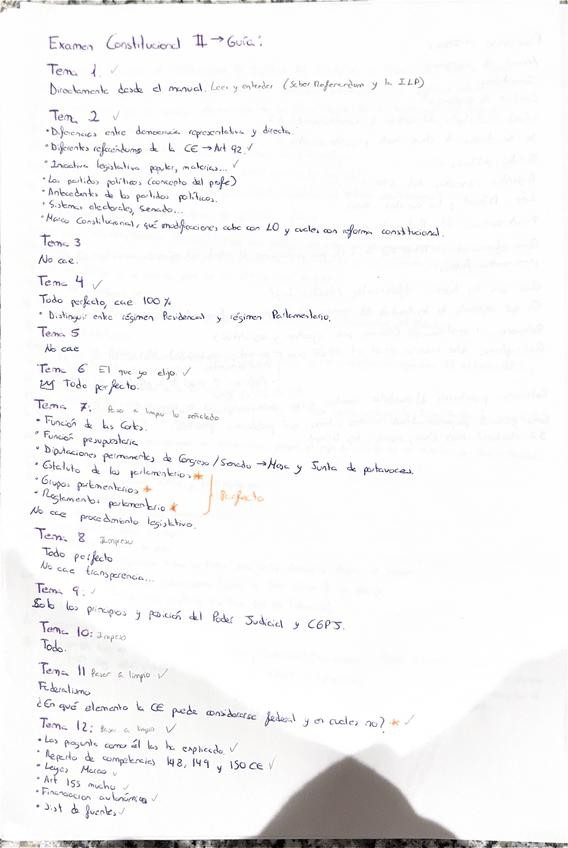 Examen Constitucional II → Guía:
Tema 1. ✓
Directamente desde el manual. Leer y entender (Saber Referendum y la ILP)
Tema 2 ✓
• Diferencias entre democracia representativa y directa.
• Diferentes referéndums de la CE → Art 92. ✓
• Iniciativa legislativa popular, materias... ✓
• Los partidos políticos (concepto del profe)
• Antecedentes de los partidos políticos.
• Sistemas electorales, Senado...
• Marco Constitucional, qué modificaciones cabe con LO y cuales con reforma constitucional.
Tema 3
No cae.
Tema 4 ✓
Todo perfecto, cae 100%
• Distinguir entre régimen Presidencial y régimen Parlamentario.
Tema 5
No cae
Tema 6 El que yo elijo. ✓
Todo perfecto.
Tema 7: Pasar a limpio lo señalado
• Función de las Cortes.
• Función presupuestaria
• Diputaciones permanentes de Congreso/Senado → Mesa y Junta de portavoces.
• Estatuto de los parlamentarios *
• Grupos parlamentarios *
• Reglamentos parlamentario *
Perfecto
No cae procedimiento legislativo.
Tema 8 Impreso
Todo perfecto
No cae transparencia...
Tema 9. ✓
Solo los principios y posición del Poder Judicial y CGPJ.
Tema 10: Impreso
Todo.
Tema 11 Pasar a limpio ✓
Federalismo
¿En qué elemento la CE puede considerarse federal y en cuales no? * ✓
Tema 12: Pasar a limpio ✓
• Los pregunta como él las ha explicado ✓
• Reparto de competencias 148, 149 y 150 CE ✓
• Leyes Marco ✓
• Art 155 mucho ✓
• Financiación autonómica ✓
• Sist de fuentes ✓